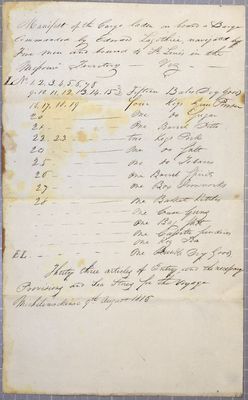 Manifest of the Cargo laden on board a Barge
Commanded by Edward navigated by
five men and bound to St Louis in the
Missouri Territory — Viz
L N° 1 2. 3. 4. 5. 6. 7. 8
9. 10. 11. 12. 13. 14. 15 Fifteen Bales Dry Goods
16. 17. 18. 19 four Kegs Gun Powder
20 — One do Sugar
21 — One Barrel Ditto
22. 23 — two Kegs Pork
24 — One do Salt
25 — One do Tobacco
26 — One Barrel
27 — One Box Ironworks
28 — One Basket Kettles
One Case Guns
One Bag Shot
One Cassette sundries
One Keg
EL — One Dry Goods
Thirty three articles of Entry and the necessary
Provisions and Sea Stores for the Voyage
Michilimackinac 9th August 1816